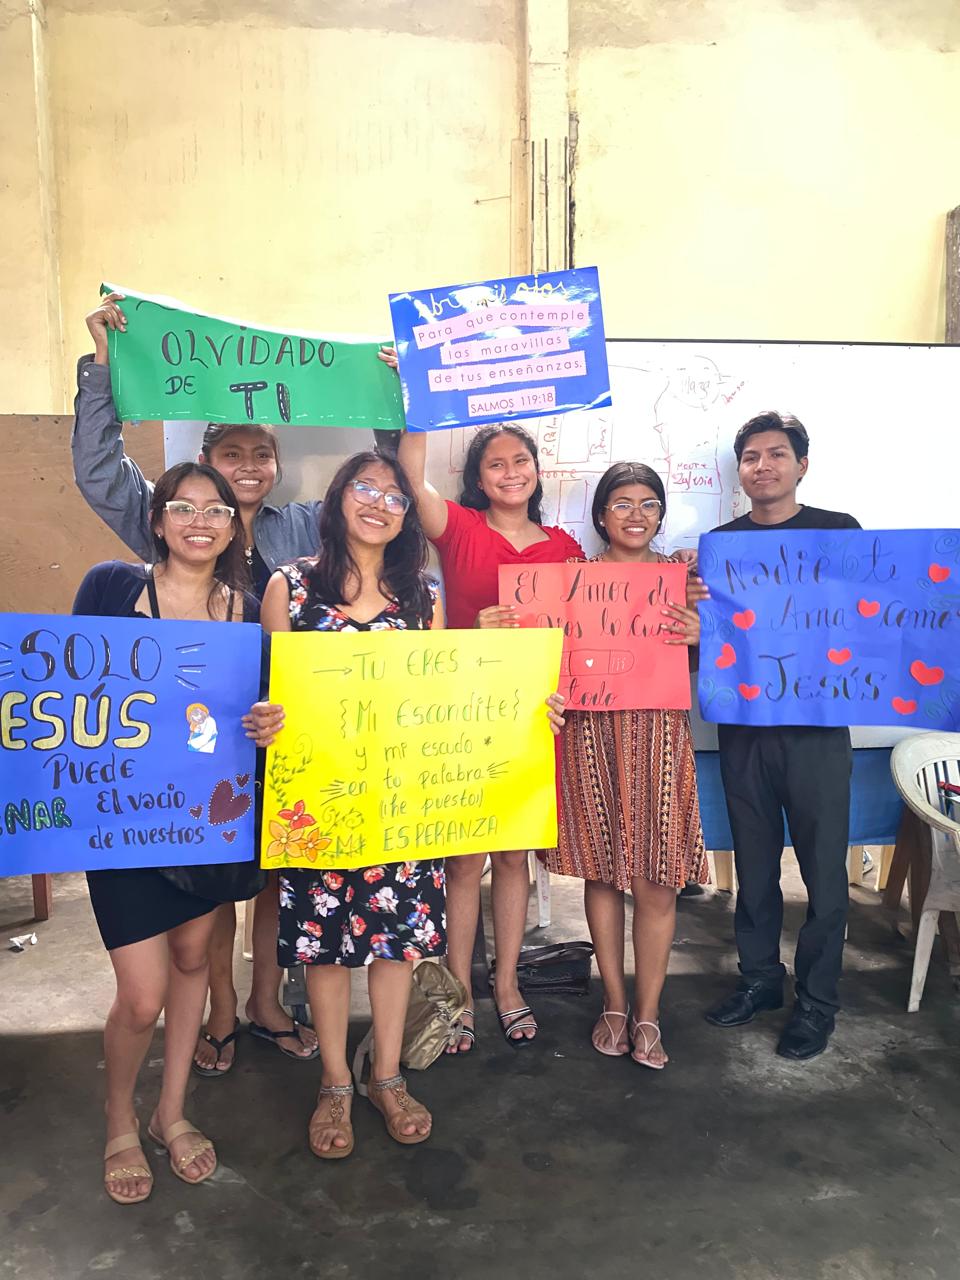 OLVIDADO
DE TI
Abre mis ojos
Para que contemple
las maravillas
de tus enseñanzas.
SALMOS 119:18
SOLO
ESÚS
Puede
NAR El vacio
de nuestros
TU ERES
{Mi Escondite}
y mi escudo
en tu palabra
(¡he puesto!)
Mi ESPERANZA
El Amor de
Dios lo Cura
todo
Nadie te
Ama como
JESÚS
Iglesia